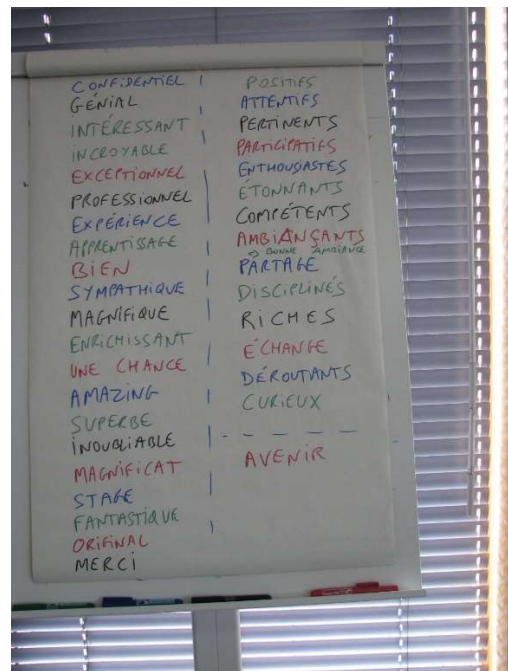 CONFIDENTIEL
GÉNIAL
INTÉRESSANT
INCROYABLE
EXCEPTIONNEL
PROFESSIONNEL
EXPÉRIENCE
APPRENTISSAGE
BIEN
SYMPATHIQUE
MAGNIFIQUE
ENRICHISSANT
UNE CHANCE
AMAZING
SUPERBE
INOUBLIABLE
MAGNIFICAT
STAGE
FANTASTIQUE
ORIGINAL
MERCI
POSITIFS
ATTENTIFS
PERTINENTS
PARTICIPATIFS
ENTHOUSIASTES
ÉTONNANTS
COMPÉTENTS
AMBIANÇANTS
→ BONNE AMBIANCE
PARTAGE
DISCIPLINÉS
RICHES
ÉCHANGE
DÉROUTANTS
CURIEUX
AVENIR